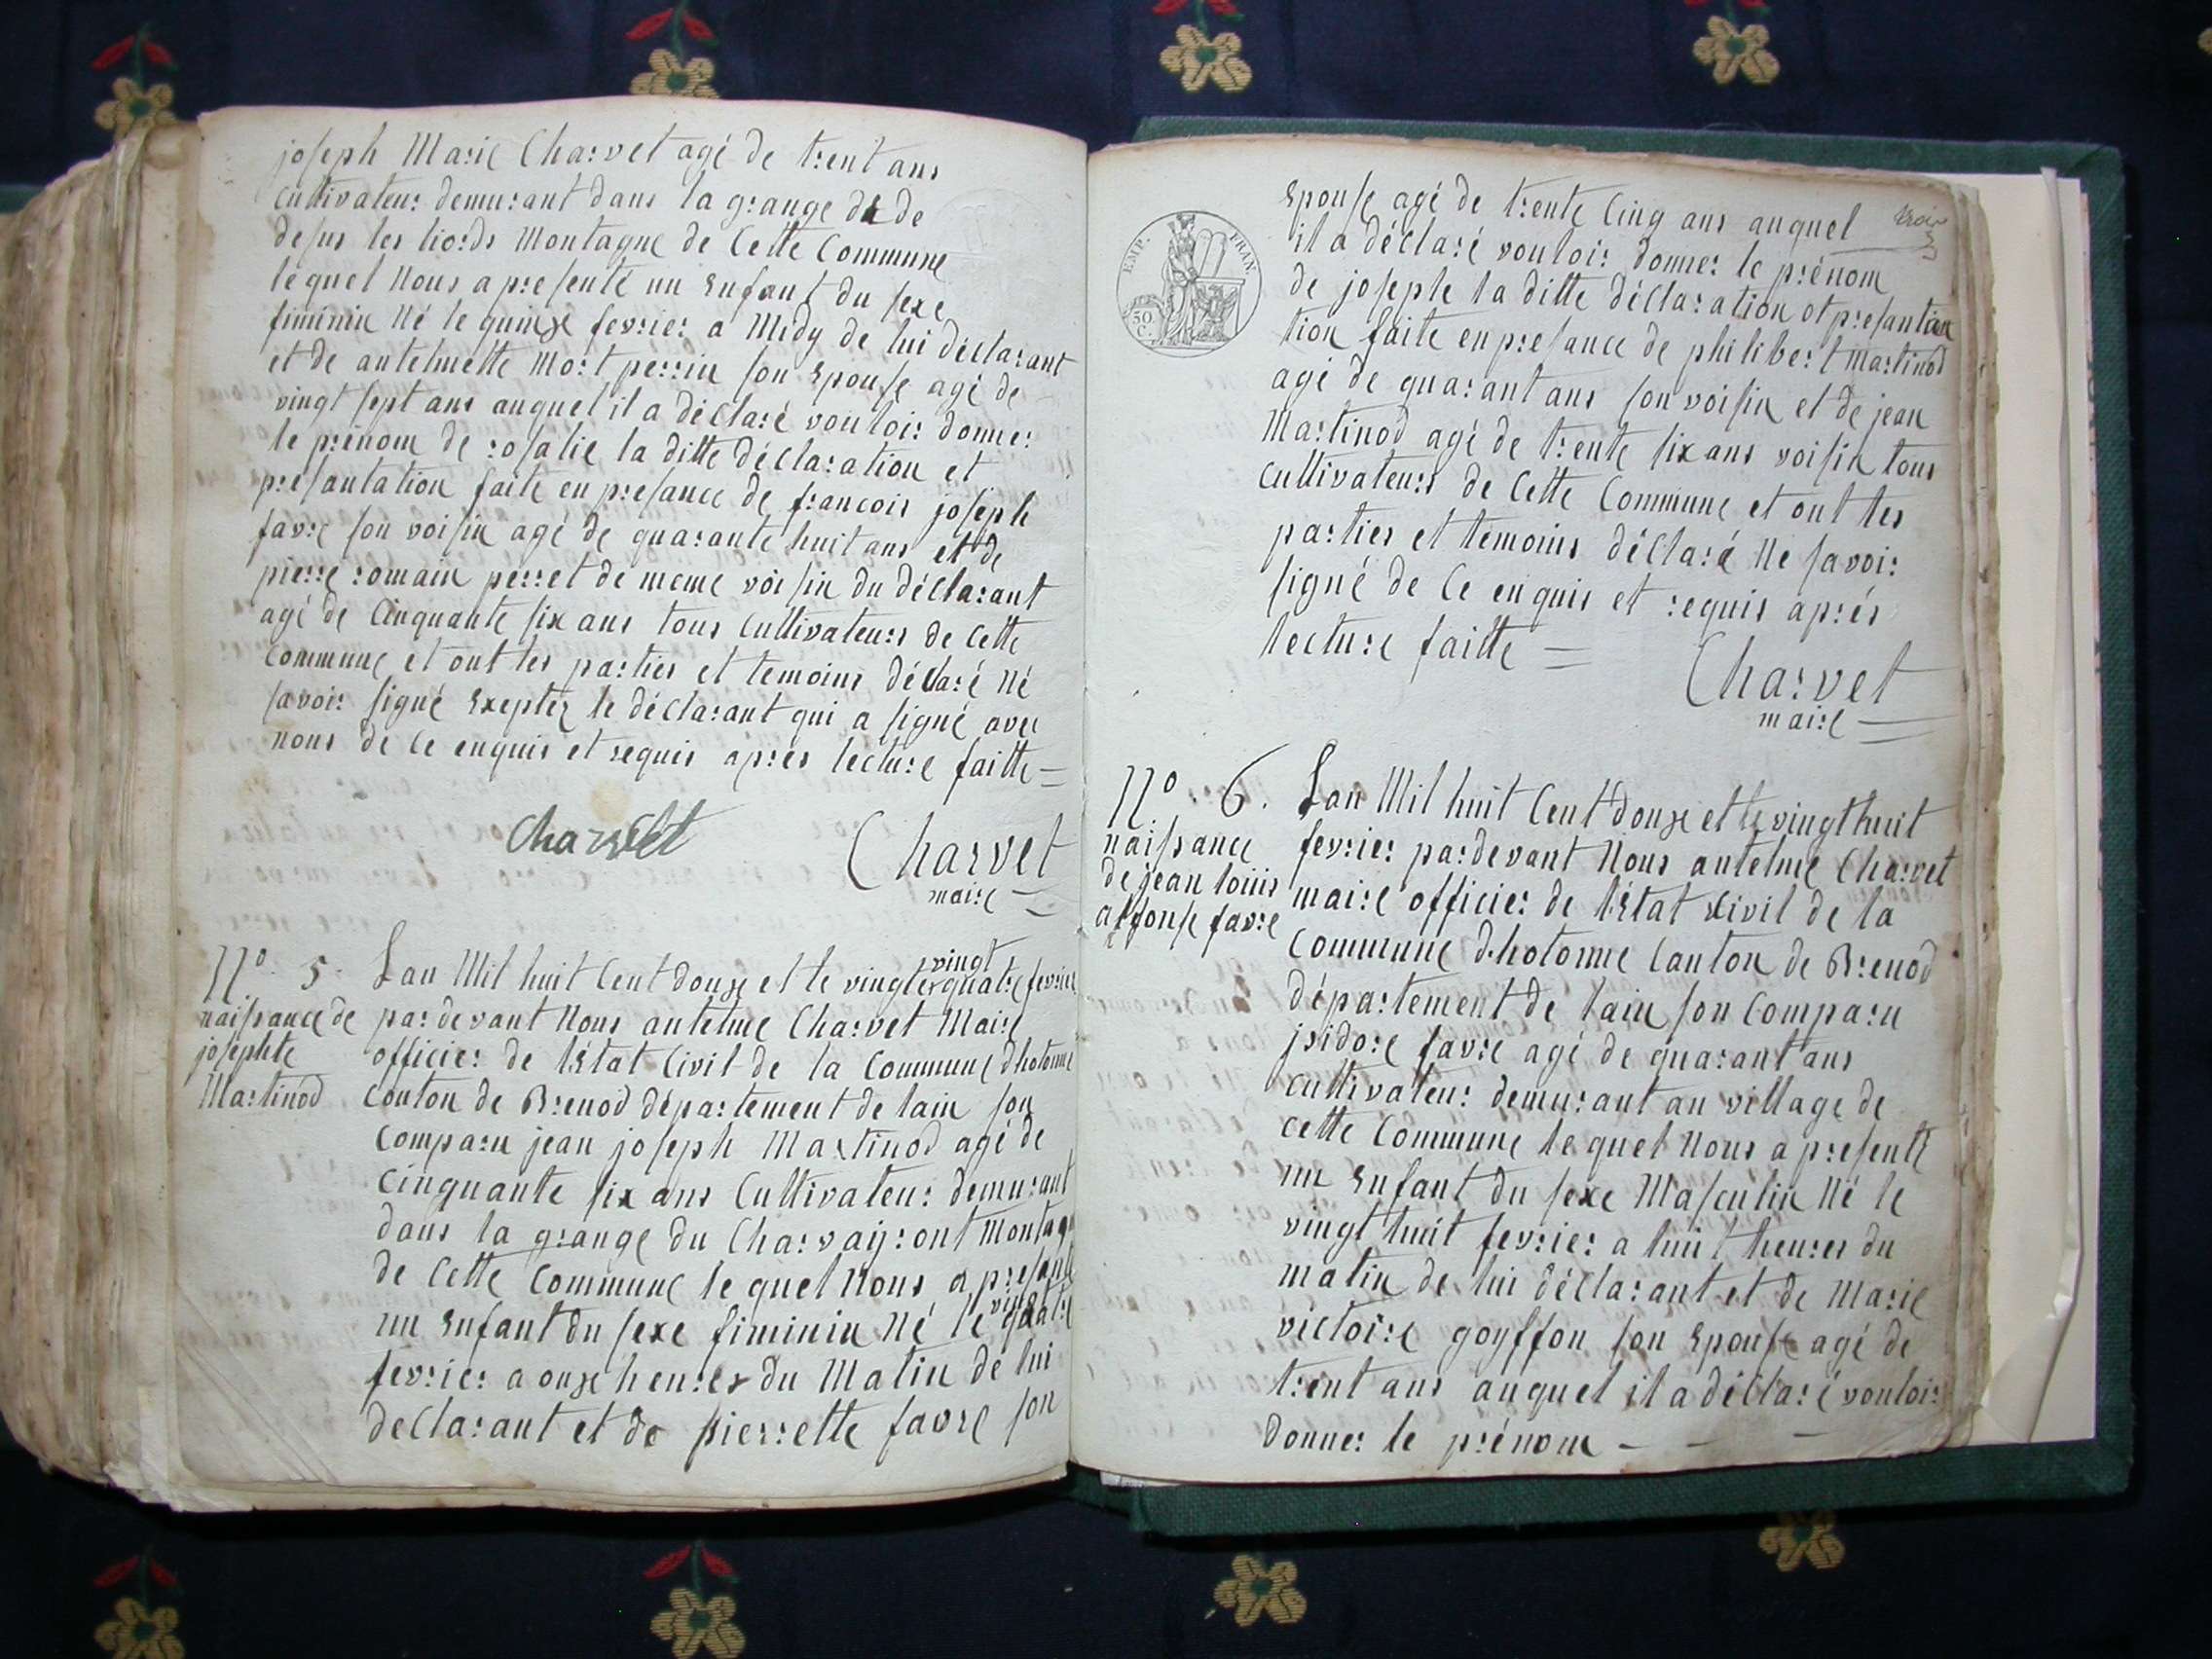 joseph Marie Charvet agé de trent ans
cultivateur demurant dans la grange de de
desus les liords Montagne de Cette Commune
lequel Nous a presenté un Enfant du sexe
fiminin Né le quinze fevrier a Midy de lui déclarant
et de antelmette Mort perrin son Epouse agé de
vingt sept ans auquel il a déclaré vouloir donner
le prénom de rosalie la ditte déclaration et
présantation faite en presance de francois joseph
favre son voisin agé de quarante huit ans et de
pierre romain perret de meme voisin du déclarant
agé de Cinquante six ans tous cultivateurs de Cette
Commune et ont les parties et temoins déclaré Né
savoir signé Exeptez le déclarant qui a signé avec
nous de Ce enquis et requis aprés lecture faitte =
Charvet
Charvet
maire
N°. 5.
naissance de
josephte
Martinod
Lan Mil huit Cent douze et le vingt quatre fevrier
vingt
par devant Nous antelme Charvet Maire
officier de lEtat Civil de la Commune dhotonne
Conton de Brenod département de lain son
Comparu jean joseph Martinod agé de
Cinquante six ans Cultivateur demurant
dans la grange du Charvayront Montagn
de Cette Commune le quel Nous a presanté
un Enfant du sexe fiminin Né le vingt quatre
fevrier a onze heures du Matin de lui
declarant et de pierrette favre son
EMP. FRAN.
50 C.
Epouse agé de trente Cinq ans auquel
il a déclaré vouloir donner le prénom
de josephe la ditte déclaration et presantan
tion faite en presance de philibert Martinod
agé de quarant ans son voisin et de jean
Martinod agé de trente six ans voisin tous
Cultivateurs de Cette Commune et ont les
parties et temoins déclaré Ne savoir
signé de Ce enquis et requis aprés
lecture faitte =
Charvet
maire
N°. 6.
naissance
de jean loiiis
alfonse favre
Lan Mil huit Cent douze et le vingt huit
fevrier par devant Nous antelme Charvet
maire officier de lEtat Civil de la
Commune d.hotonne Canton de Brenod
département de lain son Comparu
jsidore favre agé de quarant ans
cultivateur demurant au village de
Cette Commune le quel Nous a presenté
un Enfant du sexe Masculin Né le
vingt huit fevrier a huit heures du
matin de lui déclarant et de Marie
victoire goyffon son Epouse agé de
trent ans auquel il a déclaré vouloir
donner le prénom - - -